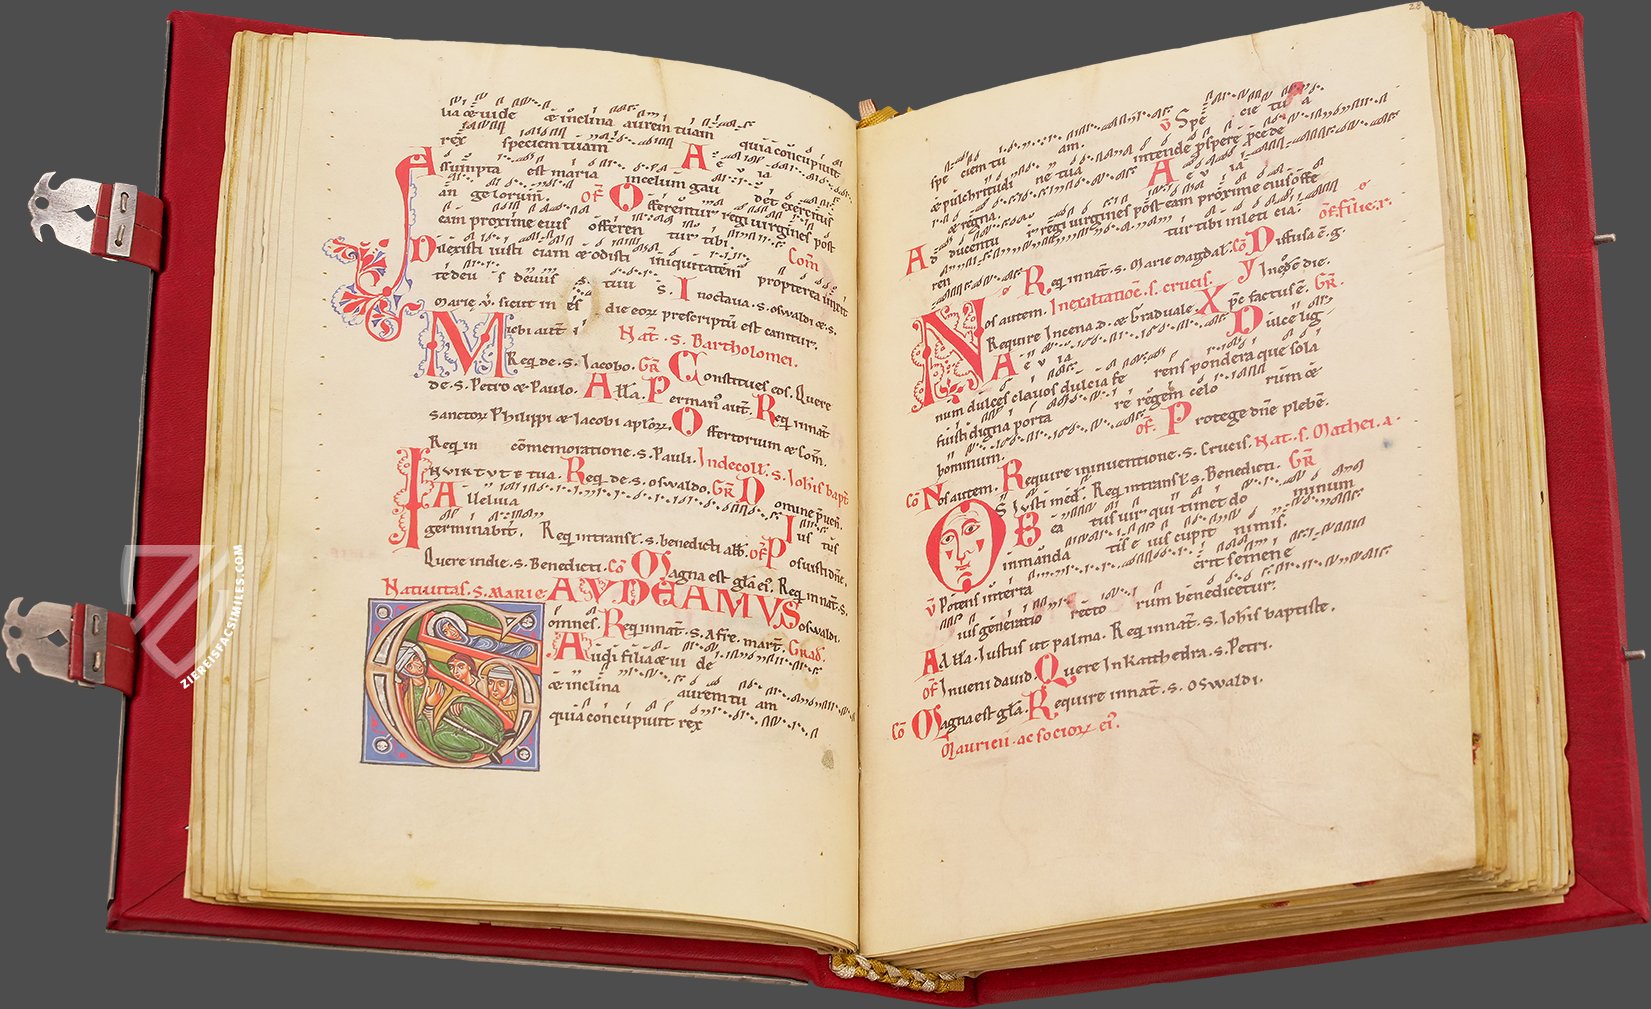 lia & uide & inclina aurem tuam quia concupiuit
rex speciem tuam A e u ia
Assumpta est maria incelum gau det exercitus
an gelorum. OF Offerentur regi uirgines post
eam proxime eius offeren tur tibi. Com
Dilexisti iusti ciam & odisti iniquitatem propterea unxit
te deu s deus tuu s. In octaua .s. osualdi & .s.
Marie. v. sicut in die eorum prescriptum est cantitur.
Michi aut Nat. s. Bartholomei.
Req de .s. Jacobo. GR Constitues eos. Quere
de .s. Petro & Paulo. Alla. Per manus aut. Req innat
sanctorum Philippi & Jacobi aplorum. Offertorium & com.
Req in commemoratione .s. Pauli. Indecoll. s. Johis bapt
INVIRTVTE tua. Req. de .s. osualdo. GR Domine preuen.
Alleluia. Ius tus
germinabit. Req intransl. s. benedicti abb. of Posuisti dne.
Quere indie .s. Benedicti. Co Magna est gla ei. Req innat. s.
Natiuitas. s. MARIE GAVDEAMVS osualdi.
omnes. Req innat. s. Afre. mart. Grad.
Audi filia & ui de
& inclina aurem tu am
quia concupiuit rex
28
v Spe cie tu a
spe ciem tu am.
& pulchritudi ne tua intende pspere pcede
& regna. A e v ia
Adducentu r regi uirgines post eam proxime eius offe
ren tur tibi inleti cia. of. filie. r.
Req innat. s. Marie magdal. Co Diffusa e. g.
Inexaltatione. s. crucis. Y In ope die.
Nos autem. Require Incena. d. & Graduale Xpc factus e. GR.
A e v ia Dulce lig
num dulces clauos dulcia fe rens pondera que sola
fuisti digna porta re regem celo rum &
hominum. of. Protege dne plebe.
Co Nos autem. Require ininuentione .s. crucis. Nat. s. Mathei. a.
Os Justi med. Req intransl. s. Benedicti. GR
Bea tus uir qui timet do minum
inmanda tis e ius cupit nimis.
v Potens interra erit semene
ius generatio recto rum benedicetur.
Ad alla. Justus ut palma. Req innat. s. Johis baptiste.
of Inueni dauid. Quere In kathedra .s. Petri.
Co Magna est gla. Require innat. s. Oswaldi.
Mauricii. ac socior ei.
ZIEREISFACSIMILES.COM